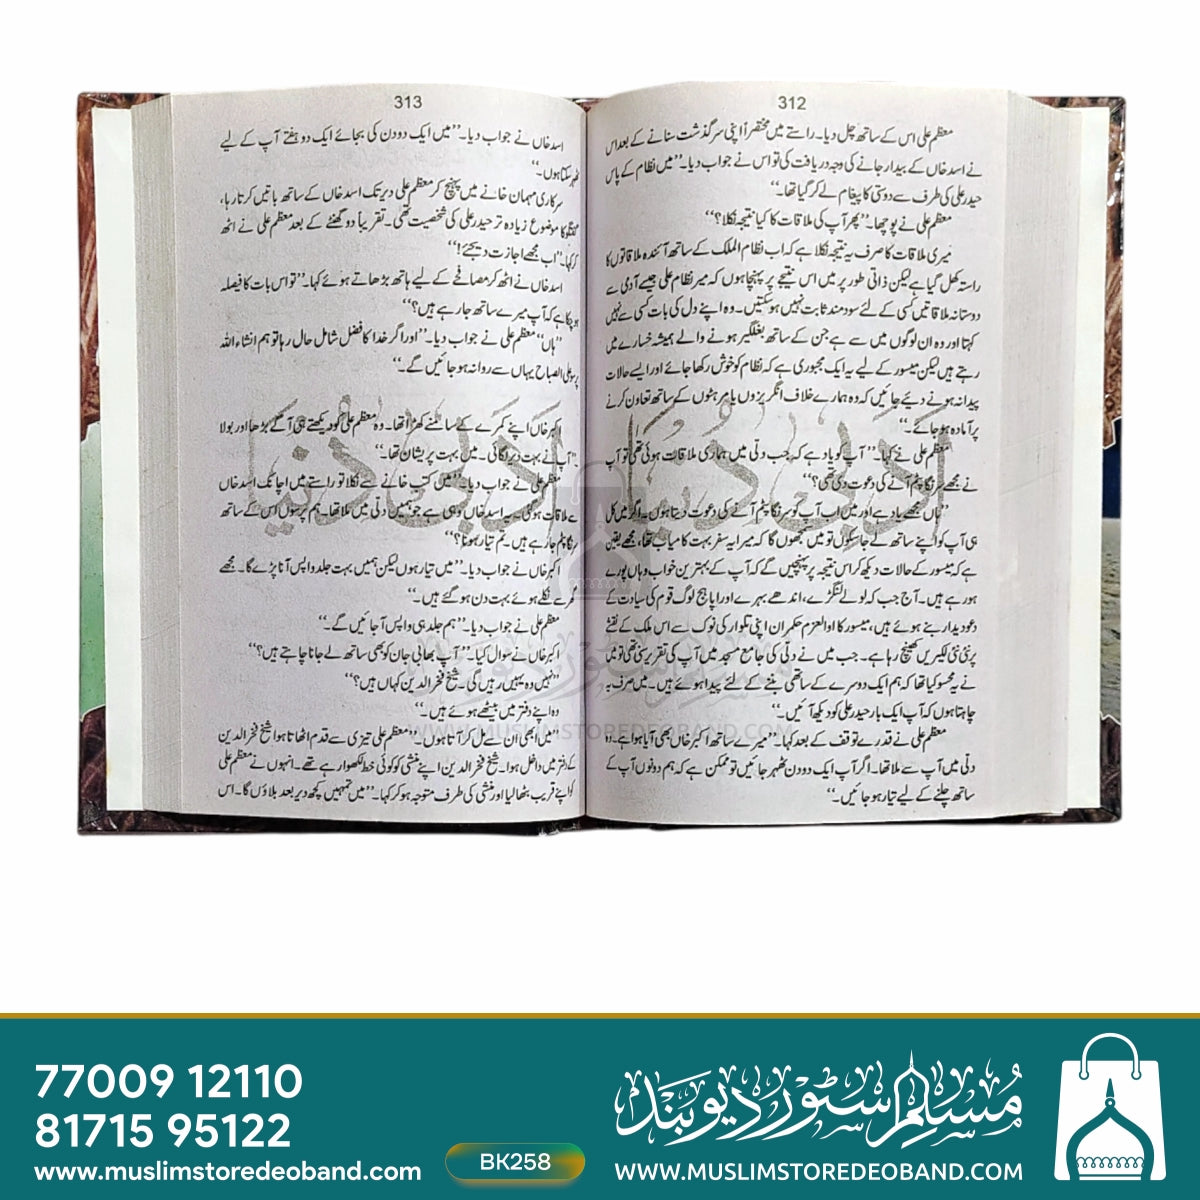 312
معظم علی اس کے ساتھ چل دیا۔ راستے میں مختصراً اپنی سرگذشت سنانے کے بعد اس
نے اسد خاں کے بیدار جانے کی وجہ دریافت کی تو اس نے جواب دیا۔ ’’میں نظام کے پاس
حیدر علی کی طرف سے دوستی کا پیغام لے کر گیا تھا۔‘‘
معظم علی نے پوچھا۔ ’’پھر آپ کی ملاقات کا کیا نتیجہ نکلا؟‘‘
میری ملاقات کا صرف یہ نتیجہ نکلا ہے کہ اب نظام الملک کے ساتھ آئندہ ملاقاتوں کا
راستہ کھل گیا ہے لیکن ذاتی طور پر میں اس نتیجے پر پہنچا ہوں کہ میر نظام علی جیسے آدمی سے
دوستانہ ملاقاتیں کسی کے لئے سود مند ثابت نہیں ہو سکتیں۔ وہ اپنے دل کی بات کسی سے نہیں
کہتا اور وہ ان لوگوں میں سے ہے جن کے ساتھ بغلگیر ہونے والے ہمیشہ خسارے میں
رہتے ہیں لیکن میسور کے لیے یہ ایک مجبوری ہے کہ نظام کو خوش رکھا جائے اور ایسے حالات
پیدا نہ ہونے دیے جائیں کہ وہ ہمارے خلاف انگریزوں یا مرہٹوں کے ساتھ تعاون کرنے
پر آمادہ ہو جائے۔‘‘
معظم علی نے کہا۔ ’’آپ کو یاد ہے کہ جب دلی میں ہماری ملاقات ہوئی تھی تو آپ
نے مجھے سرنگا پٹم آنے کی دعوت دی تھی؟‘‘
’’ہاں مجھے یاد ہے اور میں اب آپ کو سرنگا پٹم آنے کی دعوت دیتا ہوں۔ اگر میں کل
ہی آپ کو اپنے ساتھ لے جا سکوں تو میں سمجھوں گا کہ میرا یہ سفر بہت کامیاب تھا، مجھے یقین
ہے کہ میسور کے حالات دیکھ کر اس نتیجہ پر پہنچیں گے کہ آپ کے بہترین خواب وہاں پورے
ہو رہے ہیں۔ آج جب کہ لولے لنگڑے، اندھے بہرے اور اپاہج لوگ قوم کی سیادت کے
دعویدار بنے ہوئے ہیں، میسور کا اوالعزم حکمران اپنی تلوار کی نوک سے اس ملک کے نقشے
پر نئی نئی لکیریں کھینچ رہا ہے۔ جب میں نے دلی کی جامع مسجد میں آپ کی تقریر سنی تھی تو میں
نے یہ محسو کیا تھا کہ ہم ایک دوسرے کے ساتھی بننے کے لئے پیدا ہوئے ہیں۔ میں صرف یہ
چاہتا ہوں کہ آپ ایک بار حیدر علی کو دیکھ آئیں۔‘‘
معظم علی نے قدرے توقف کے بعد کہا۔ ’’میرے ساتھ اکبر خاں بھی آیا ہوا ہے۔ وہ
دلی میں آپ سے ملا تھا۔ اگر آپ ایک دو دن ٹھہر جائیں تو ممکن ہے کہ ہم دونوں آپ کے
ساتھ چلنے کے لیے تیار ہو جائیں۔‘‘
313
اسد خاں نے جواب دیا۔ ’’میں ایک دو دن کی بجائے ایک دو ہفتے آپ کے لیے
ٹھہر سکتا ہوں۔‘‘
سرکاری مہمان خانے میں پہنچ کر معظم علی دیر تک اسد خاں کے ساتھ باتیں کرتا رہا،
گفتگو کا موضوع زیادہ تر حیدر علی کی شخصیت تھی۔ تقریباً دو گھنٹے کے بعد معظم علی نے اٹھ
کر کہا۔ ’’اب مجھے اجازت دیجئے!‘‘
اسد خاں نے اٹھ کر مصافحے کے لیے ہاتھ بڑھاتے ہوئے کہا۔ ’’تو اس بات کا فیصلہ
ہو چکا ہے کہ آپ میرے ساتھ جا رہے ہیں؟‘‘
’’ہاں‘‘ معظم علی نے جواب دیا۔ ’’اور اگر خدا کا فضل شامل حال رہا تو ہم انشاء اللہ
پرسو علی الصباح یہاں سے روانہ ہو جائیں گے۔‘‘
اکبر خاں اپنے کمرے کے سامنے کھڑا تھا۔ وہ معظم علی کو دیکھتے ہی آگے بڑھا اور بولا
’’آپ نے بہت دیر لگائی۔ میں بہت پریشان تھا۔‘‘
معظم علی نے جواب دیا۔ ’’میں کتب خانے سے نکلا تو راستے میں اچانک اسد خاں
سے ملاقات ہو گئی۔ یہ اسد خاں وہی ہے جو ہمیں دلی میں ملا تھا۔ ہم پرسوں اس کے ساتھ
سرنگا پٹم جا رہے ہیں۔ تم تیار ہو نا؟‘‘
اکبر خاں نے جواب دیا۔ ’’میں تیار ہوں لیکن ہمیں بہت جلد واپس آنا پڑے گا۔ مجھے
گھر سے نکلے ہوئے بہت دن ہو گئے ہیں۔‘‘
معظم علی نے جواب دیا۔ ’’ہم جلد ہی واپس آ جائیں گے۔‘‘
اکبر خاں نے سوال کیا۔ ’’آپ بھابی جان کو بھی ساتھ لے جانا چاہتے ہیں؟‘‘
’’نہیں وہ یہیں رہیں گی۔ شیخ فخر الدین کہاں ہیں؟‘‘
وہ اپنے دفتر میں بیٹھے ہوئے ہیں۔‘‘
’’میں ابھی ان سے مل کر آتا ہوں۔‘‘ معظم علی تیزی سے قدم اٹھاتا ہوا شیخ فخر الدین
کے دفتر میں داخل ہوا۔ شیخ فخر الدین اپنے منشی کو کوئی خط لکھوا رہے تھے۔ انہوں نے معظم علی
کو اپنے قریب بٹھا لیا اور منشی کی طرف متوجہ ہو کر کہا۔ ’’میں تمہیں کچھ دیر بعد بلاؤں گا۔ اس
ادبی دنیا ادبی دنیا
مسلم سٹور دیوبند
WWW.MUSLIMSTOREDEOBAND.COM
77009 12110
81715 95122
www.muslimstoredeoband.com
BK258
مسلم سٹور دیوبند
WWW.MUSLIMSTOREDEOBAND.COM